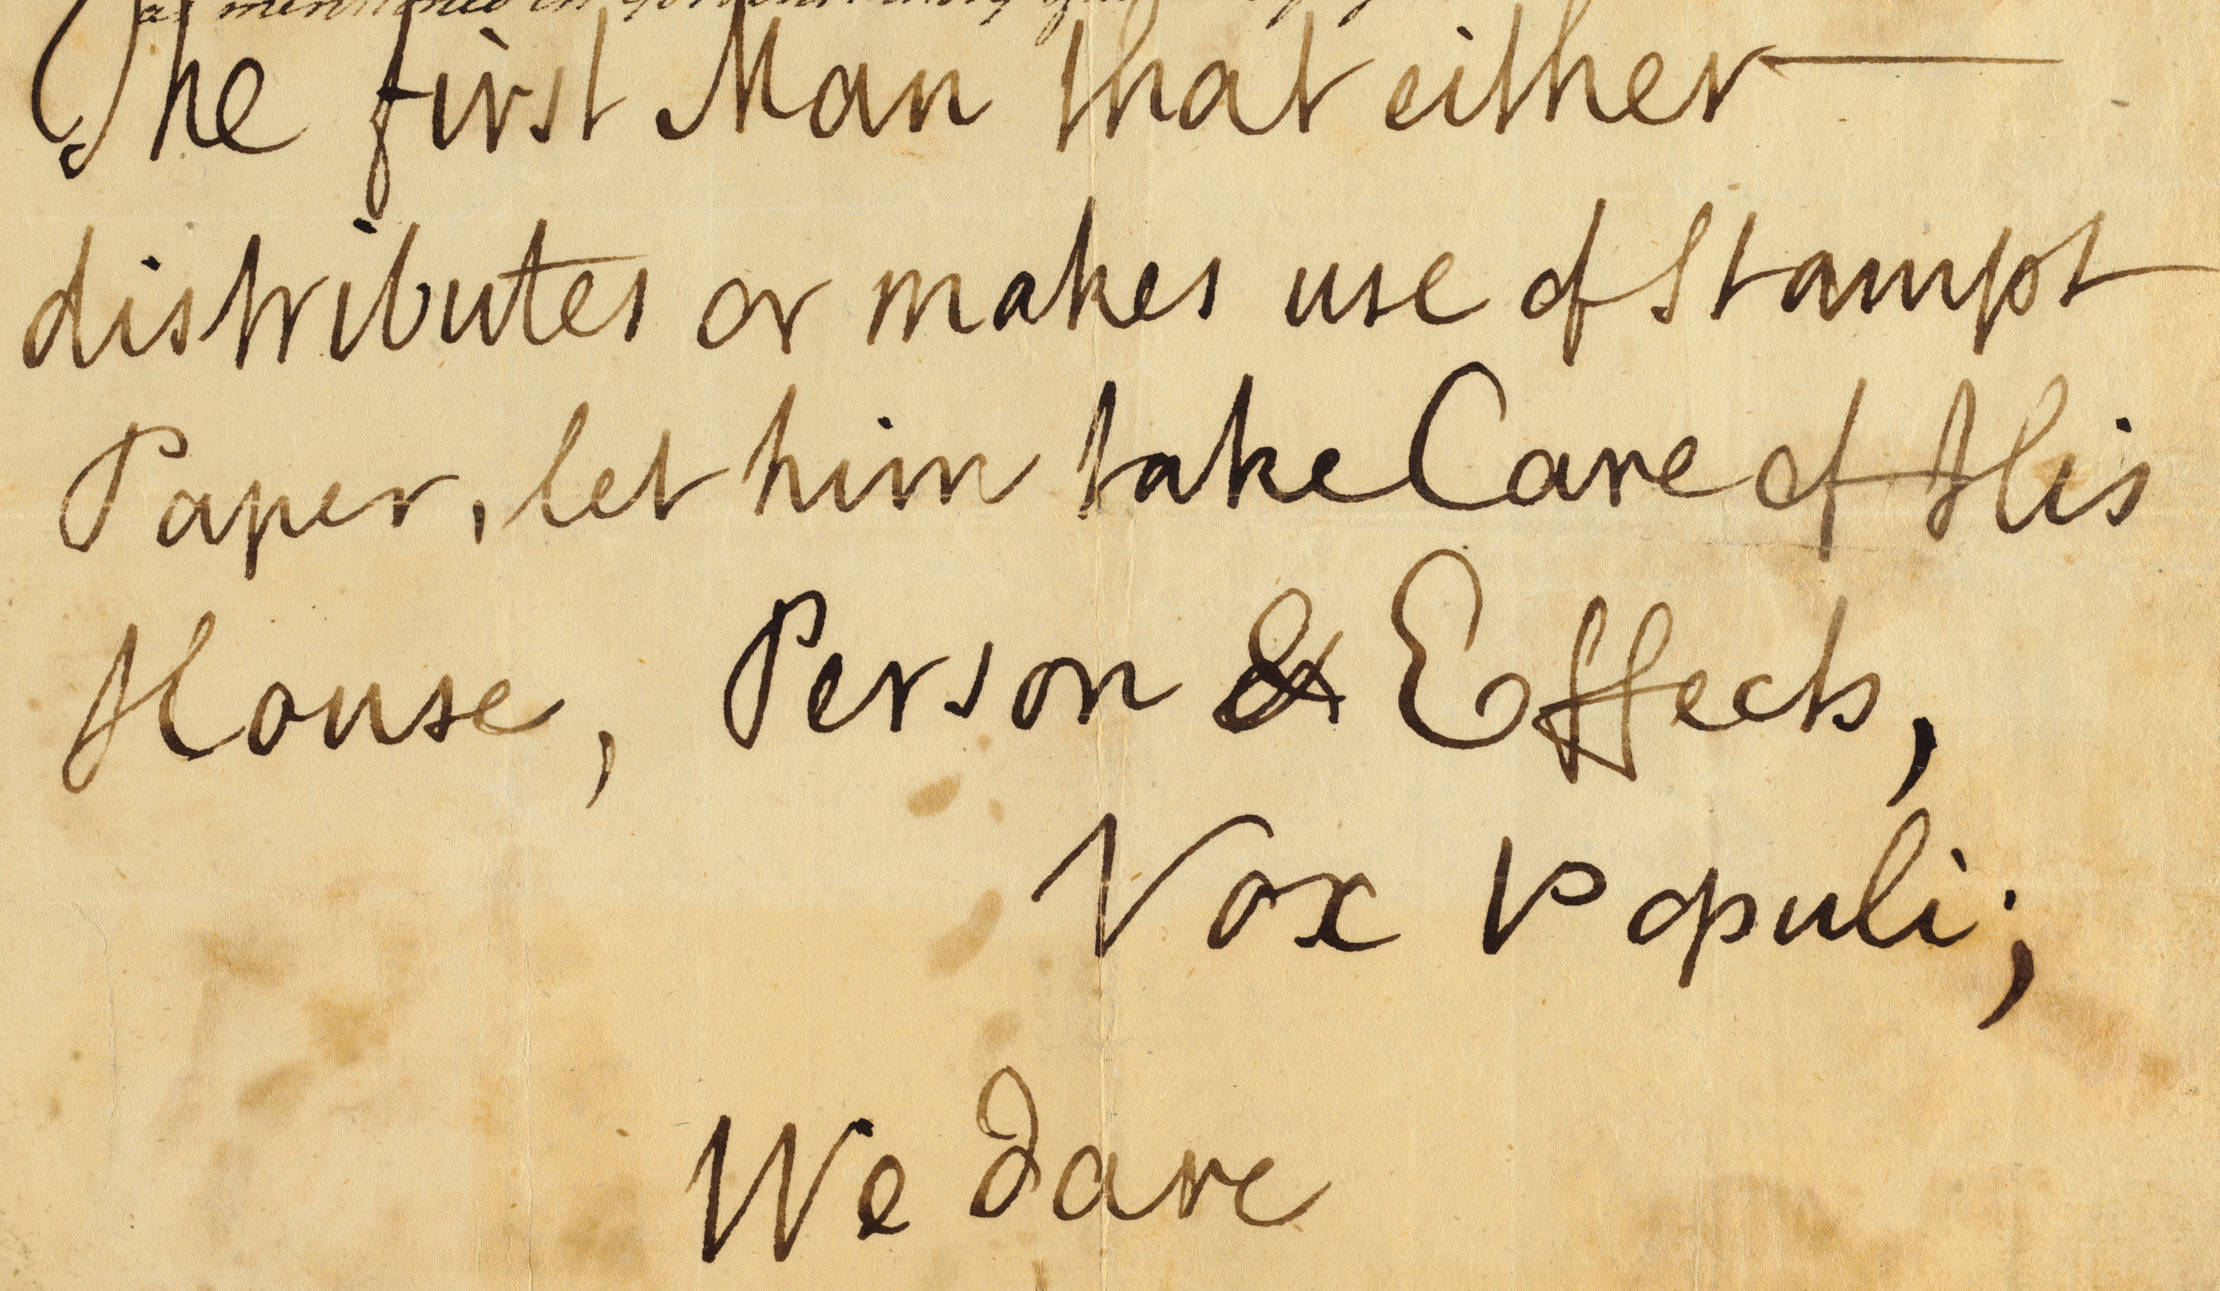 as mentioned in
The first Man that either
distributes or makes use of Stampt
Paper, let him take Care of His
House, Person & Effects,
Vox Populi;
We dare